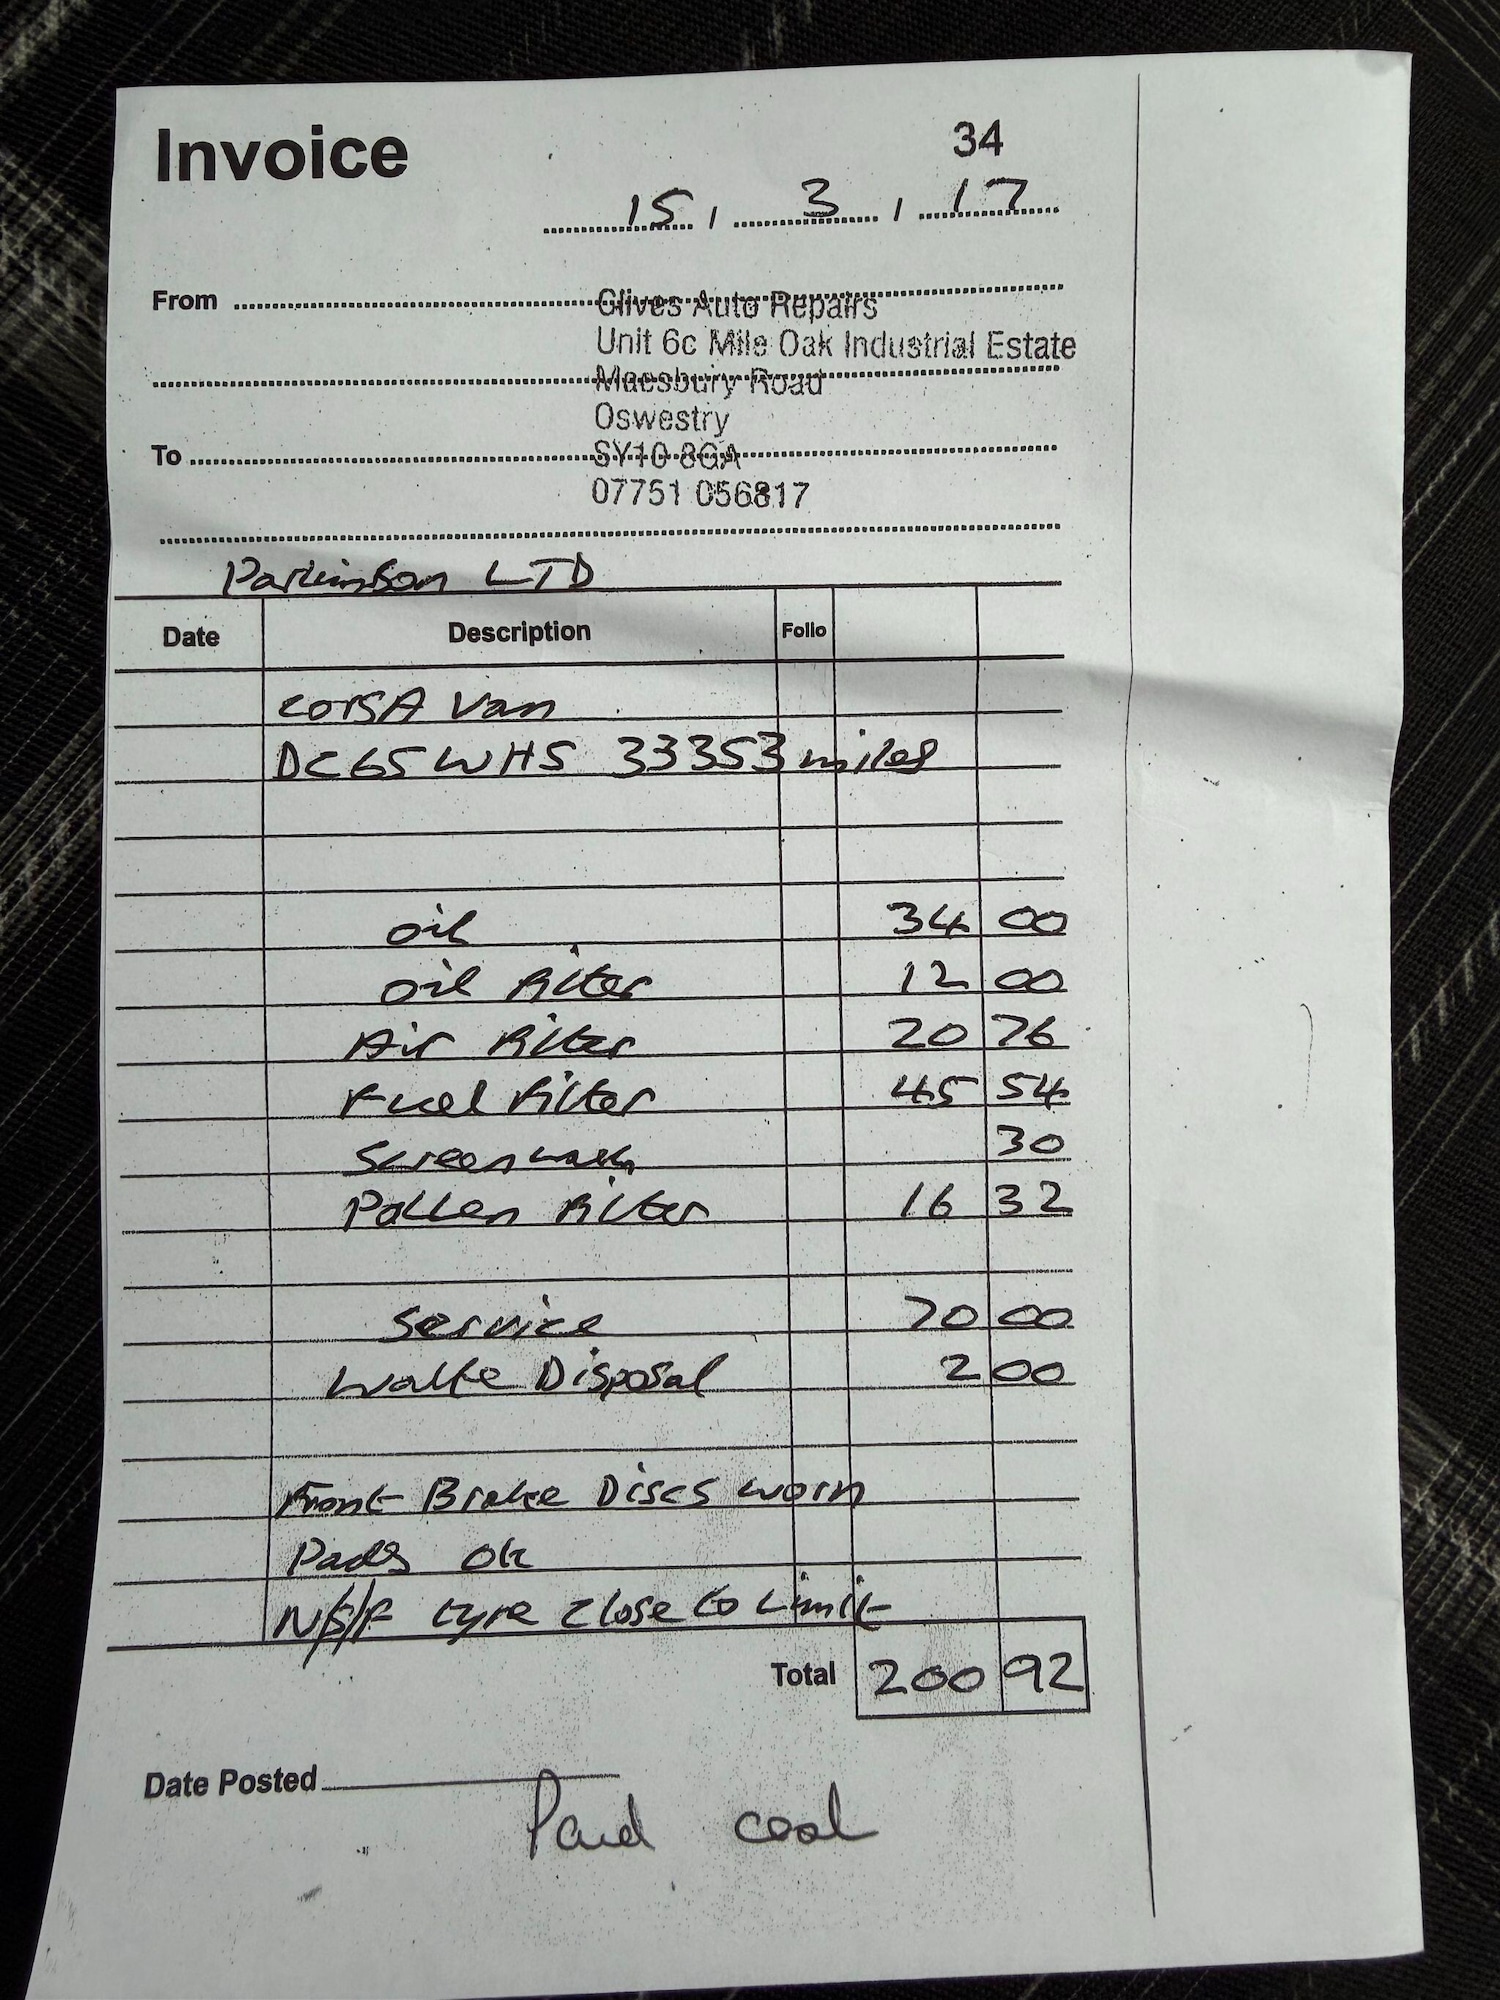 Invoice
34
15 / 3 / 17
From
Clives Auto Repairs
Unit 6c Mile Oak Industrial Estate
Maesbury Road
Oswestry
To
SY10 8GA
07751 056817
Parkinson LTD
Date Description Folio
corsA Van
DC65WHS 33353 miles
oil 34 00
oil Filter 12 00
Air Filter 20 76
Fuel Filter 45 54
Screenwash 30
Pollen Filter 16 32
Service 70 00
Waste Disposal 2 00
Front Brake Discs worn
Pads ok
N/S/F tyre close to Limit
Total 200 92
Date Posted
Paid cash